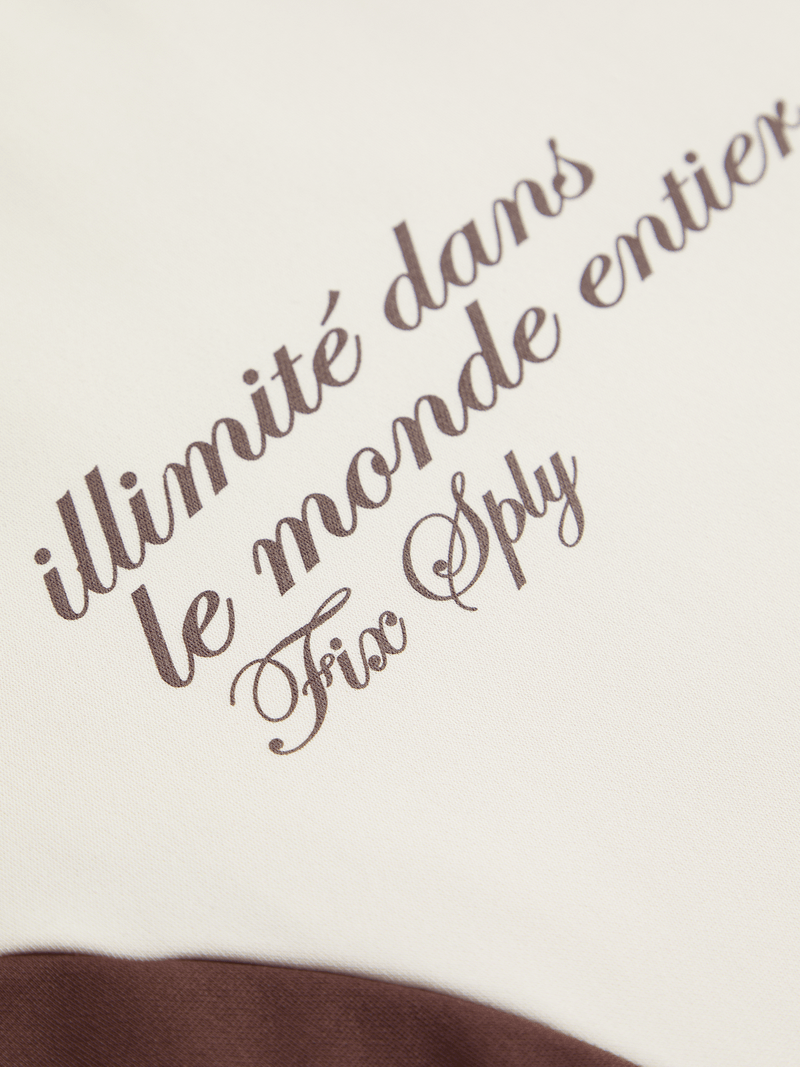 illimité dans
le monde entier
Fix Sply